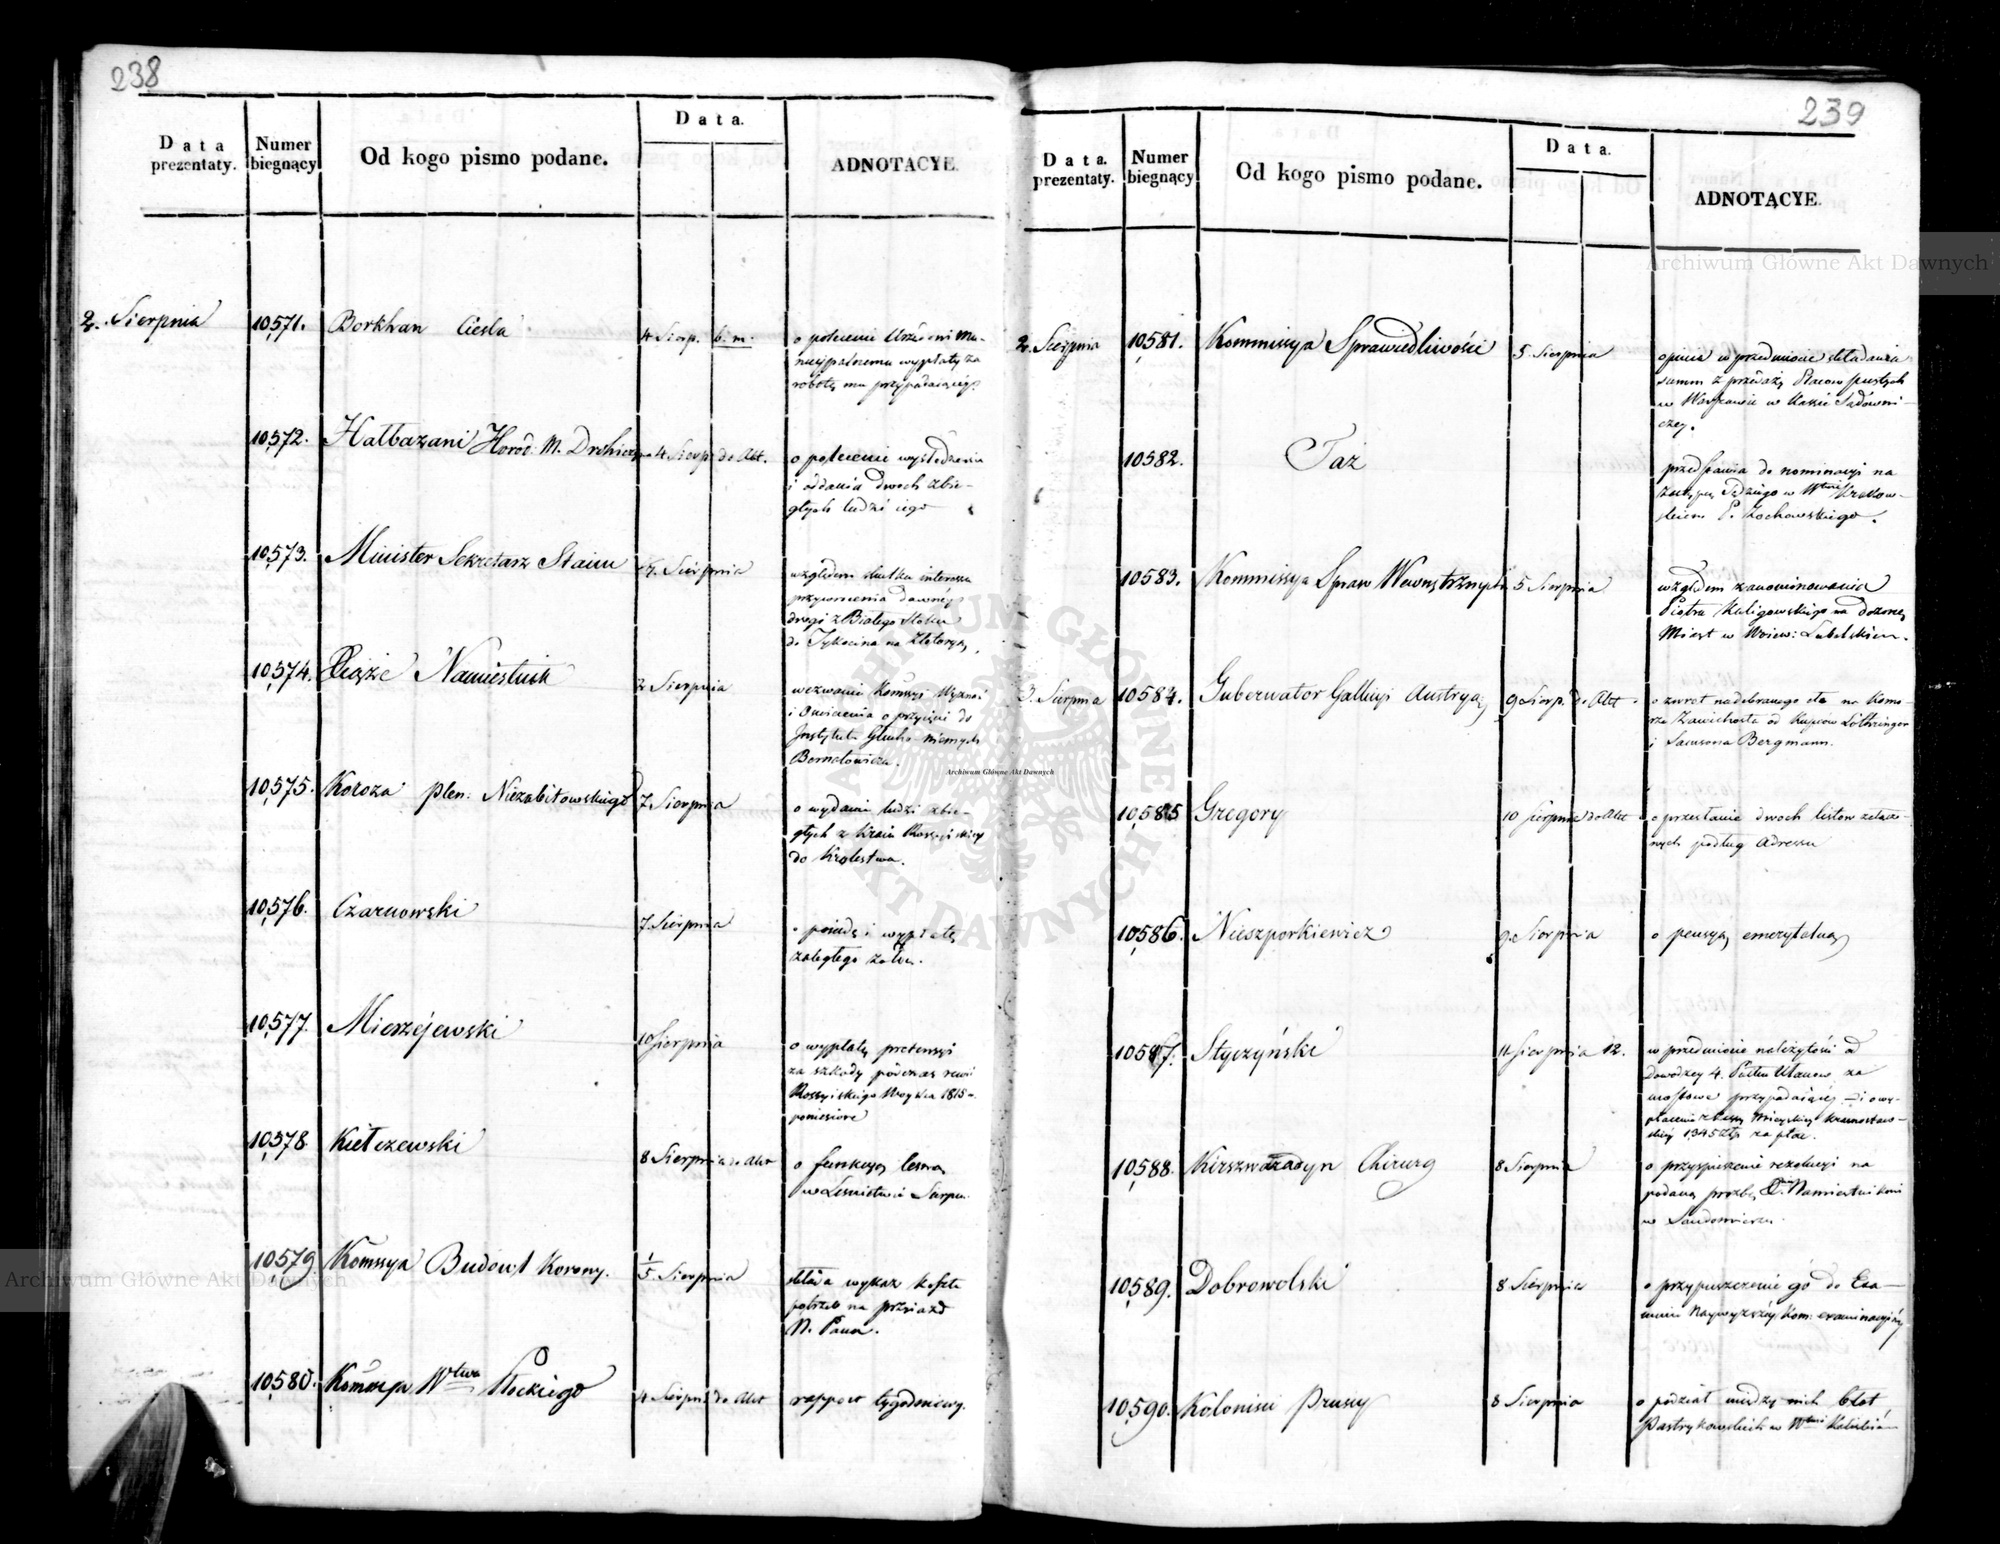 238
Data prezentaty.
Numer biegnący
Od kogo pismo podane.
Data.
ADNOTACYE.
2. Sierpnia
10,571. Borkhan Cieśla 4 Sierp. b. m.
o polecenie Urzędowi Mu-
nicypalnemu wypłaty za
robotę mu przypadającey
10,572. Hałbazani Horod: M. 4 Sierp: do Akt.
o polecenie wyśledzenia
i oddania dwoch zbie-
głych ludzi iego
10,573. Minister Sekretarz Stanu 7. Sierpnia
względem skutku interessu
przywrócenia dawney
drogi z Białego Stoku
do Tykocina na Złotoryą
10,574. Xiąże Namiestnik 2 Sierpnia
wezwanie Kommsyi Wyznań
i Oświecenia o przyjęciu do
Instytutu Głucho-niemych
Bernatowicza.
10,575. Koroza plen: Niezabitowskiego 7. Sierpnia
o wydanie ludzi zbie-
głych z kraiu Rossyiskiey
do Królestwa.
10,576. Czarnowski 7 Sierpnia
o posadę i wypłatę
zaległego żołdu.
10,577. Mierzéjewski 10 Sierpnia
o wypłatę pretensyi
za szkody podczas
Rossyiskiego Woyska 1815
poniesione
10,578 Kiełczewski 8 Sierpnia do Akt
o funkcyą leśną
w Leśnictwie
10,579 Kommsya Budowl Korony. 1/5 Sierpnia
składa wykaz koszta
potrzeb na przyiazd
N. Pana.
10,580. Kommsya Wtwa Płockiego 4 Sierpn do Akt
rapport tygodniowy.
239
Data. prezentaty.
Numer biegnący
Od kogo pismo podane.
Data.
ADNOTACYE.
2. Sierpnia
10,581. Kommissya Sprawiedliwości 5. Sierpnia
opinia w przedmiocie składania
summ z przedaży Placow pustych
w Warszawie w Kassie Sądowni-
czey.
10582. Taż
przedstawia do nominacyi na
Sędziego w Wtwie Krakow-
skiem P. Żochowskiego.
10583. Kommissya Spraw Wewnętrznych 5 Sierpnia
względem zanominowania
Piotra Kuligowskiego na dozorcę
Miast w Woiew: Lubelskiem.
3. Sierpnia
10584. Gubernator Gallicyi Austrya: 9 Sierp. do Akt
o zwrot nadebranego cła na Komo-
rze Zawichosta od Kupcow Löthringer
i Samsona Bergmann.
10,585 Gregory 10 Sierpnia do Akt
o przesłanie dwoch listow załączo-
nych podług Adressu
10,586. Nieszporkiewicz 9. Sierpnia
o pensyą emerytalną
10587. Styczyński 11 Sierpnia 12.
w przedmiocie należytości od
Dowodzcy 4. Pułku Ułanow za
przypadaiącéy — i o wy-
płacenie z kassy Mieyskiéy Krasnostaw-
skiéy 1345 Złp za plac.
10,588. Kirszwadyn Chirurg 8 Sierpnia
o przyspieszenie rezolucyi na
podaną prozbę Namiestnikowi
w Sandomierzu.
10,589. Dobrowolski 8 Sierpnia
o przypuszczenie go do Exa-
minu Naywyższéy Kom: examinacyjnéy
10,590. Kolonisci Prusey 8 Sierpnia
o podział między nich błot
w Wtwie
Archiwum Główne Akt Dawnych
Archiwum Główne Akt Dawnych
Archiwum Główne Akt Dawnych
ARCHIWUM GŁÓWNE AKT DAWNYCH